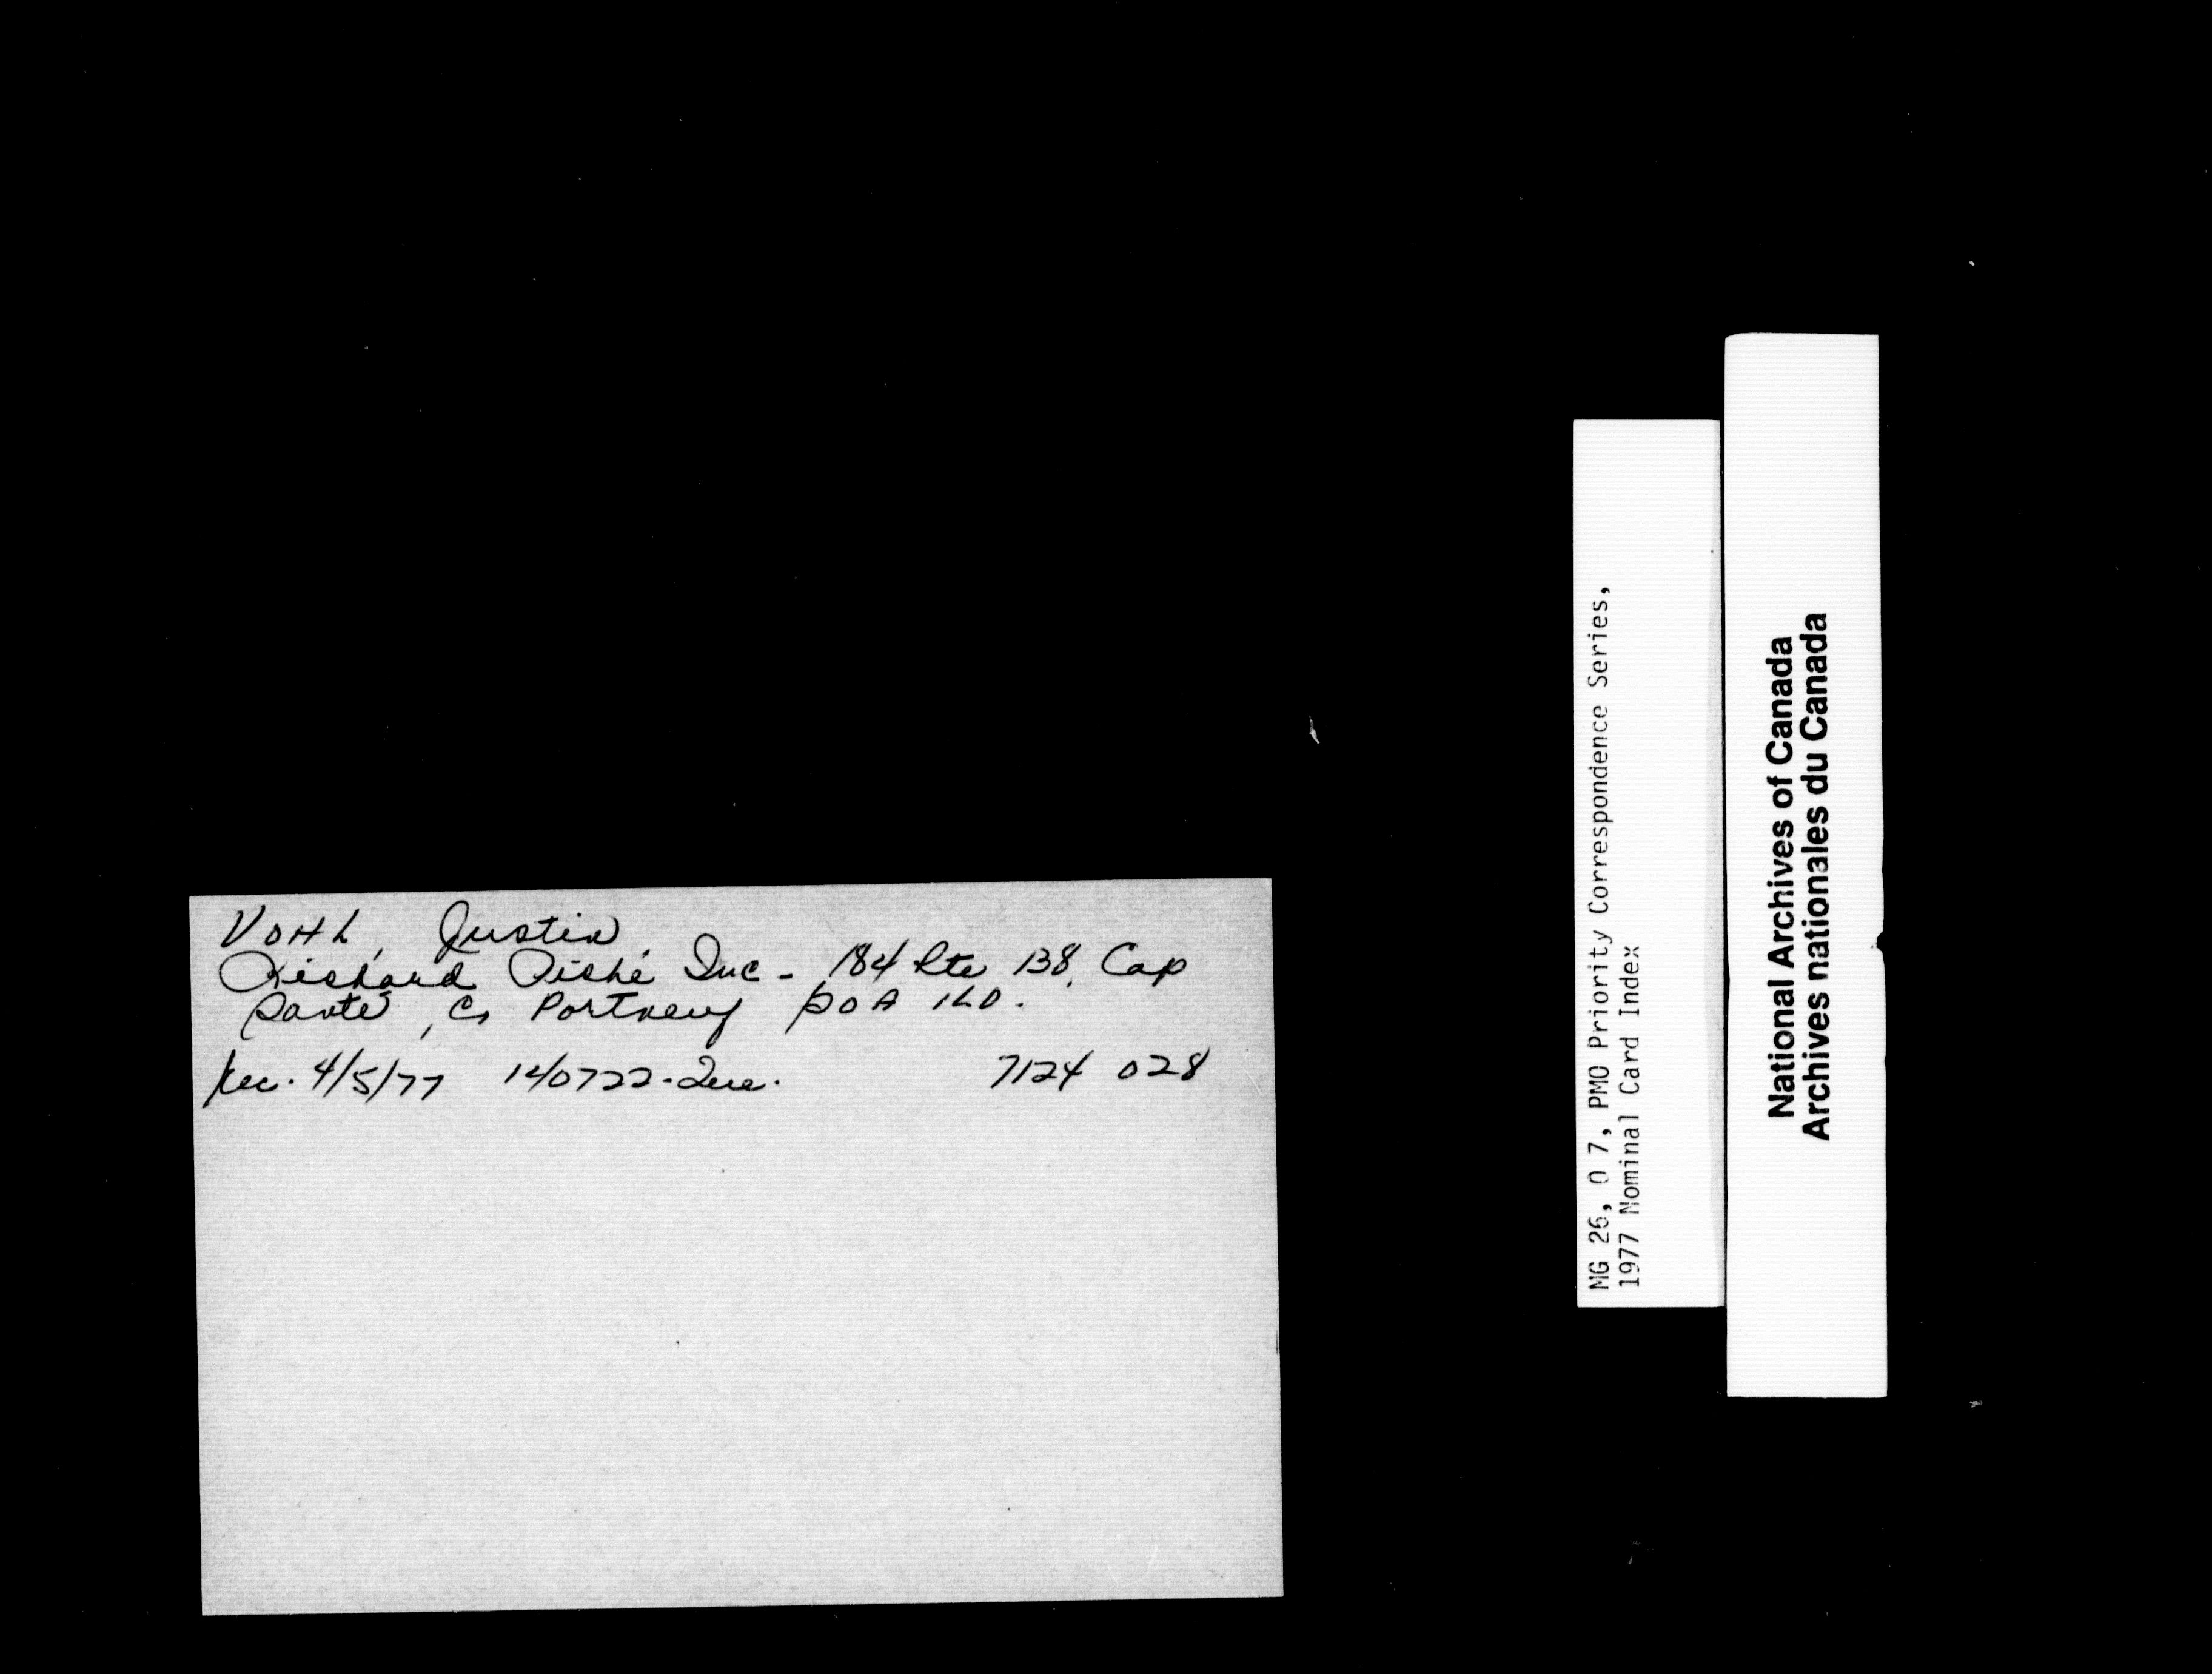 VOHL, Justin
Richard Piché Inc - 184 Rte 138, Cap
Santé, Co Portneuf G0A 1L0.
Rec. 4/5/77 140722-Que. 7124 028
MG 26, O 7, PMO Priority Correspondence Series,
1977 Nominal Card Index
National Archives of Canada
Archives nationales du Canada